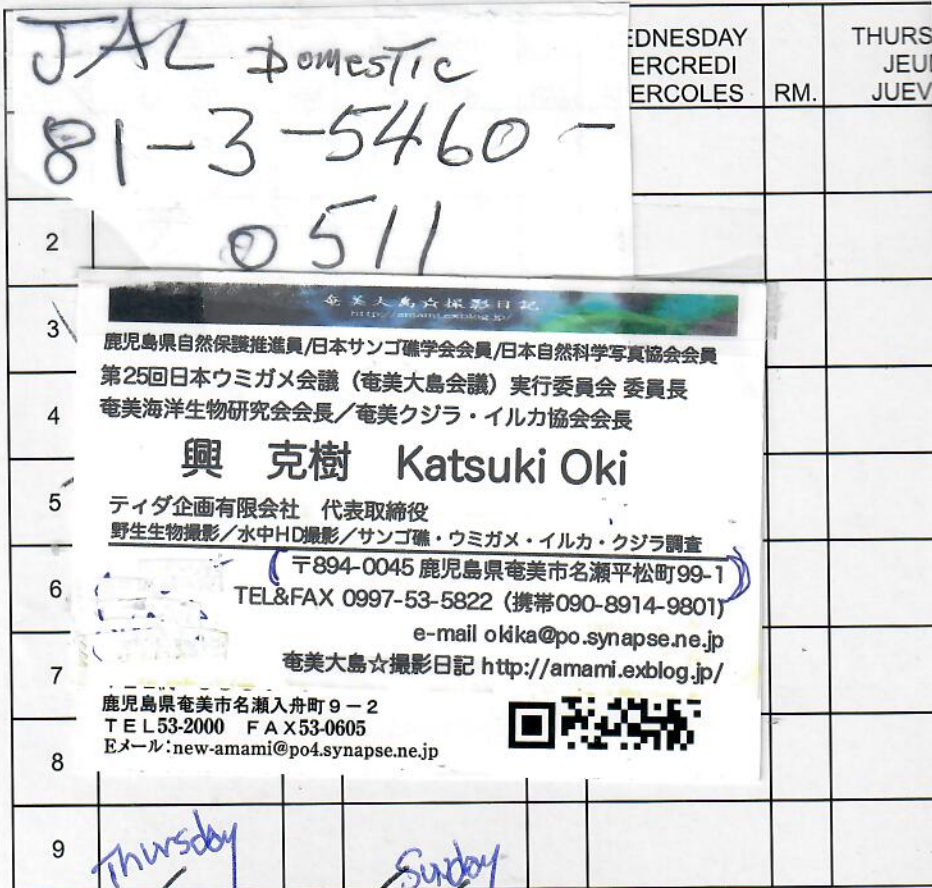 JAL Domestic
81-3-5460-
0511
EDNESDAY
ERCREDI
ERCOLES
RM.
THURS
JEU
JUEV
2
3
4
5
6
7
8
9
奄美大島☆撮影日記
http://amami.exblog.jp/
鹿児島県自然保護推進員/日本サンゴ礁学会会員/日本自然科学写真協会会員
第25回日本ウミガメ会議（奄美大島会議）実行委員会 委員長
奄美海洋生物研究会会長／奄美クジラ・イルカ協会会長
興 克樹 Katsuki Oki
ティダ企画有限会社 代表取締役
野生生物撮影／水中HD撮影／サンゴ礁・ウミガメ・イルカ・クジラ調査
〒894-0045 鹿児島県奄美市名瀬平松町99-1
TEL&FAX 0997-53-5822（携帯090-8914-9801)
e-mail okika@po.synapse.ne.jp
奄美大島☆撮影日記 http://amami.exblog.jp/
鹿児島県奄美市名瀬入舟町９－２
ＴＥＬ53-2000 ＦＡＸ53-0605
Eメール：new-amami@po4.synapse.ne.jp
Thursday
Sunday